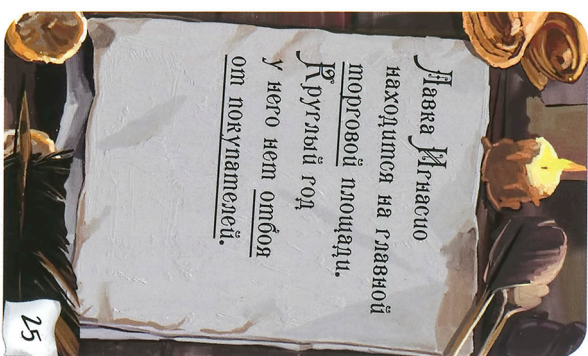 Лавка Игнасио
находится на главной
торговой площади.
Круглый год
у него нет отбоя
от покупателей.
25